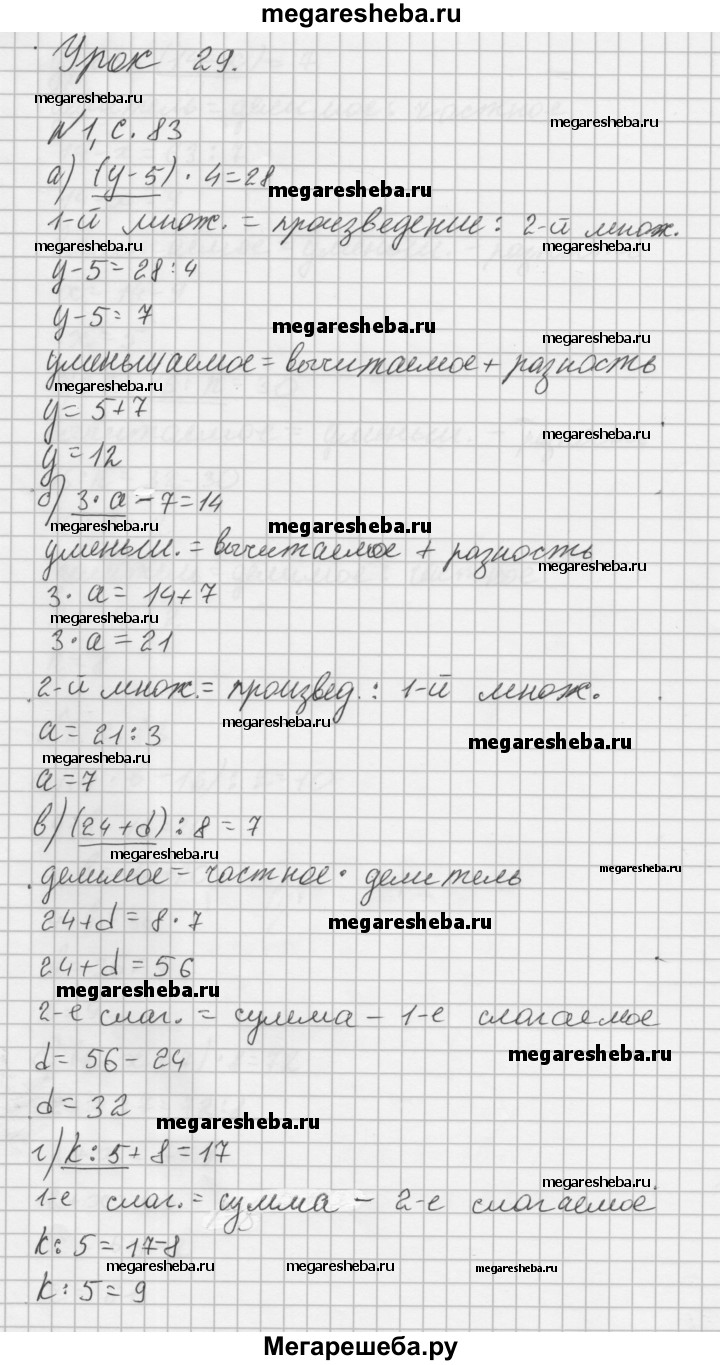 megaresheba.ru
Урок 29.
megaresheba.ru
megaresheba.ru
№1, с. 83
а) (y-5) · 4=28
megaresheba.ru
1-й множ. = произведение : 2-й множ.
megaresheba.ru
megaresheba.ru
y-5=28:4
y-5=7
megaresheba.ru
уменьшаемое = вычитаемое + разность
megaresheba.ru
y=5+7
megaresheba.ru
y=12
б) 3·a-7=14
megaresheba.ru
megaresheba.ru
уменьш. = вычитаемое + разность
megaresheba.ru
3·a=14+7
megaresheba.ru
3·a=21
2-й множ. = произвед. : 1-й множ.
megaresheba.ru
a=21:3
megaresheba.ru
megaresheba.ru
a=7
в) (24+d) : 8=7
megaresheba.ru
megaresheba.ru
делимое = частное · делитель
24+d=8·7
megaresheba.ru
24+d=56
megaresheba.ru
2-е слаг. = сумма - 1-е слагаемое
megaresheba.ru
d=56-24
d=32
megaresheba.ru
г) k:5+8=17
megaresheba.ru
1-е слаг. = сумма - 2-е слагаемое
k:5=17-8
megaresheba.ru
megaresheba.ru
megaresheba.ru
k:5=9
Мегарешеба.ру